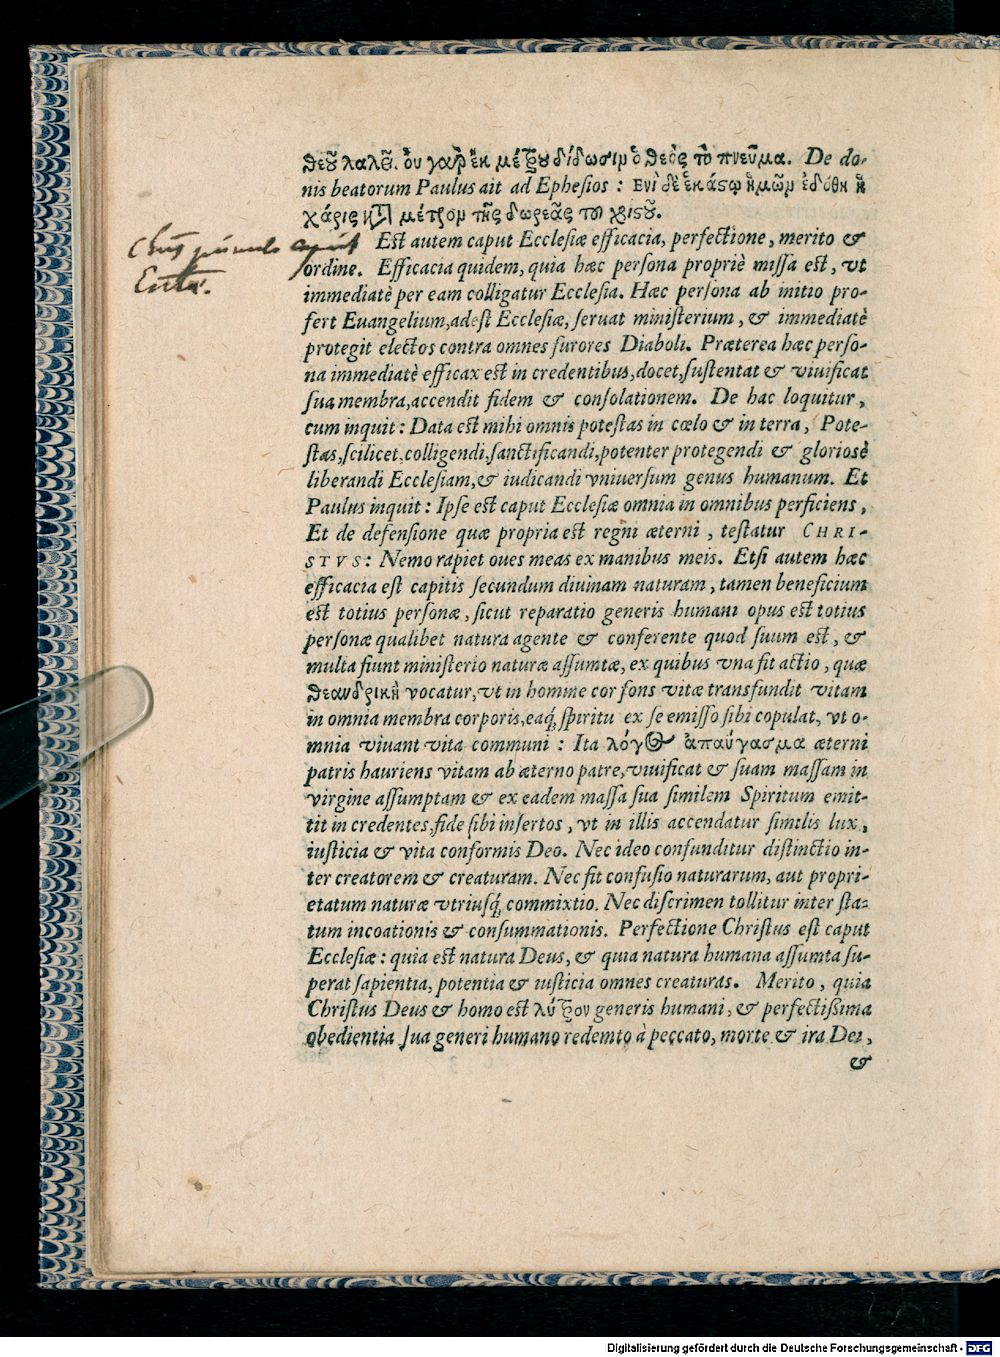 θεοῦ λαλεῖ. ὀυ γαρ ἐκ μέτρου δίδωσιμ ὁ θεὸς τὸ πνεῦμα. De do-
nis beatorum Paulus ait ad Ephesios : Ενὶ δὲ ἑκάστῳ ἡμῶμ ἐδόθη ἡ
χάρις κατὰ μέτρομ τῆς δωρεᾶς τοῦ χριστοῦ.
Est autem caput Ecclesiæ efficacia, perfectione, merito &
ordine. Efficacia quidem, quia hæc persona propriè missa est, vt
immediatè per eam colligatur Ecclesia. Hæc persona ab initio pro-
fert Euangelium, adest Ecclesiæ, seruat ministerium, & immediatè
protegit electos contra omnes furores Diaboli. Præterea hæc perso-
na immediatè efficax est in credentibus, docet, sustentat & viuificat
sua membra, accendit fidem & consolationem. De hac loquitur,
cum inquit : Data est mihi omnis potestas in cœlo & in terra, Pote-
stas, scilicet, colligendi, sanctificandi, potenter protegendi & gloriosè
liberandi Ecclesiam, & iudicandi vniuersum genus humanum. Et
Paulus inquit : Ipse est caput Ecclesiæ omnia in omnibus perficiens,
Et de defensione quæ propria est regni æterni, testatur CHRI-
STVS : Nemo rapiet oues meas ex manibus meis. Etsi autem hæc
efficacia est capitis secundum diuinam naturam, tamen beneficium
est totius personæ, sicut reparatio generis humani opus est totius
personæ qualibet natura agente & conferente quod suum est, &
multa fiunt ministerio naturæ assumtæ, ex quibus vna fit actio, quæ
θεανδρικὴ vocatur, vt in homine cor fons vitæ transfundit vitam
in omnia membra corporis, eaq́ spiritu ex se emisso sibi copulat, vt o-
mnia viuant vita communi : Ita λόγος ἀπαύγασμα æterni
patris hauriens vitam ab æterno patre, viuificat & suam massam in
virgine assumptam & ex eadem massa sua similem Spiritum emit-
tit in credentes, fide sibi insertos, vt in illis accendatur similis lux,
iusticia & vita conformis Deo. Nec ideo confunditur distinctio in-
ter creatorem & creaturam. Nec fit confusio naturarum, aut propri-
etatum naturæ vtriusq́ commixtio. Nec discrimen tollitur inter sta-
tum incoationis & consummationis. Perfectione Christus est caput
Ecclesiæ : quia est natura Deus, & quia natura humana assumta su-
perat sapientia, potentia & iusticia omnes creaturas. Merito, quia
Christus Deus & homo est λύτρον generis humani, & perfectißima
obedientia sua generi humano redemto à peccato, morte & ira Dei,
&
Digitalisierung gefördert durch die Deutsche Forschungsgemeinschaft - DFG